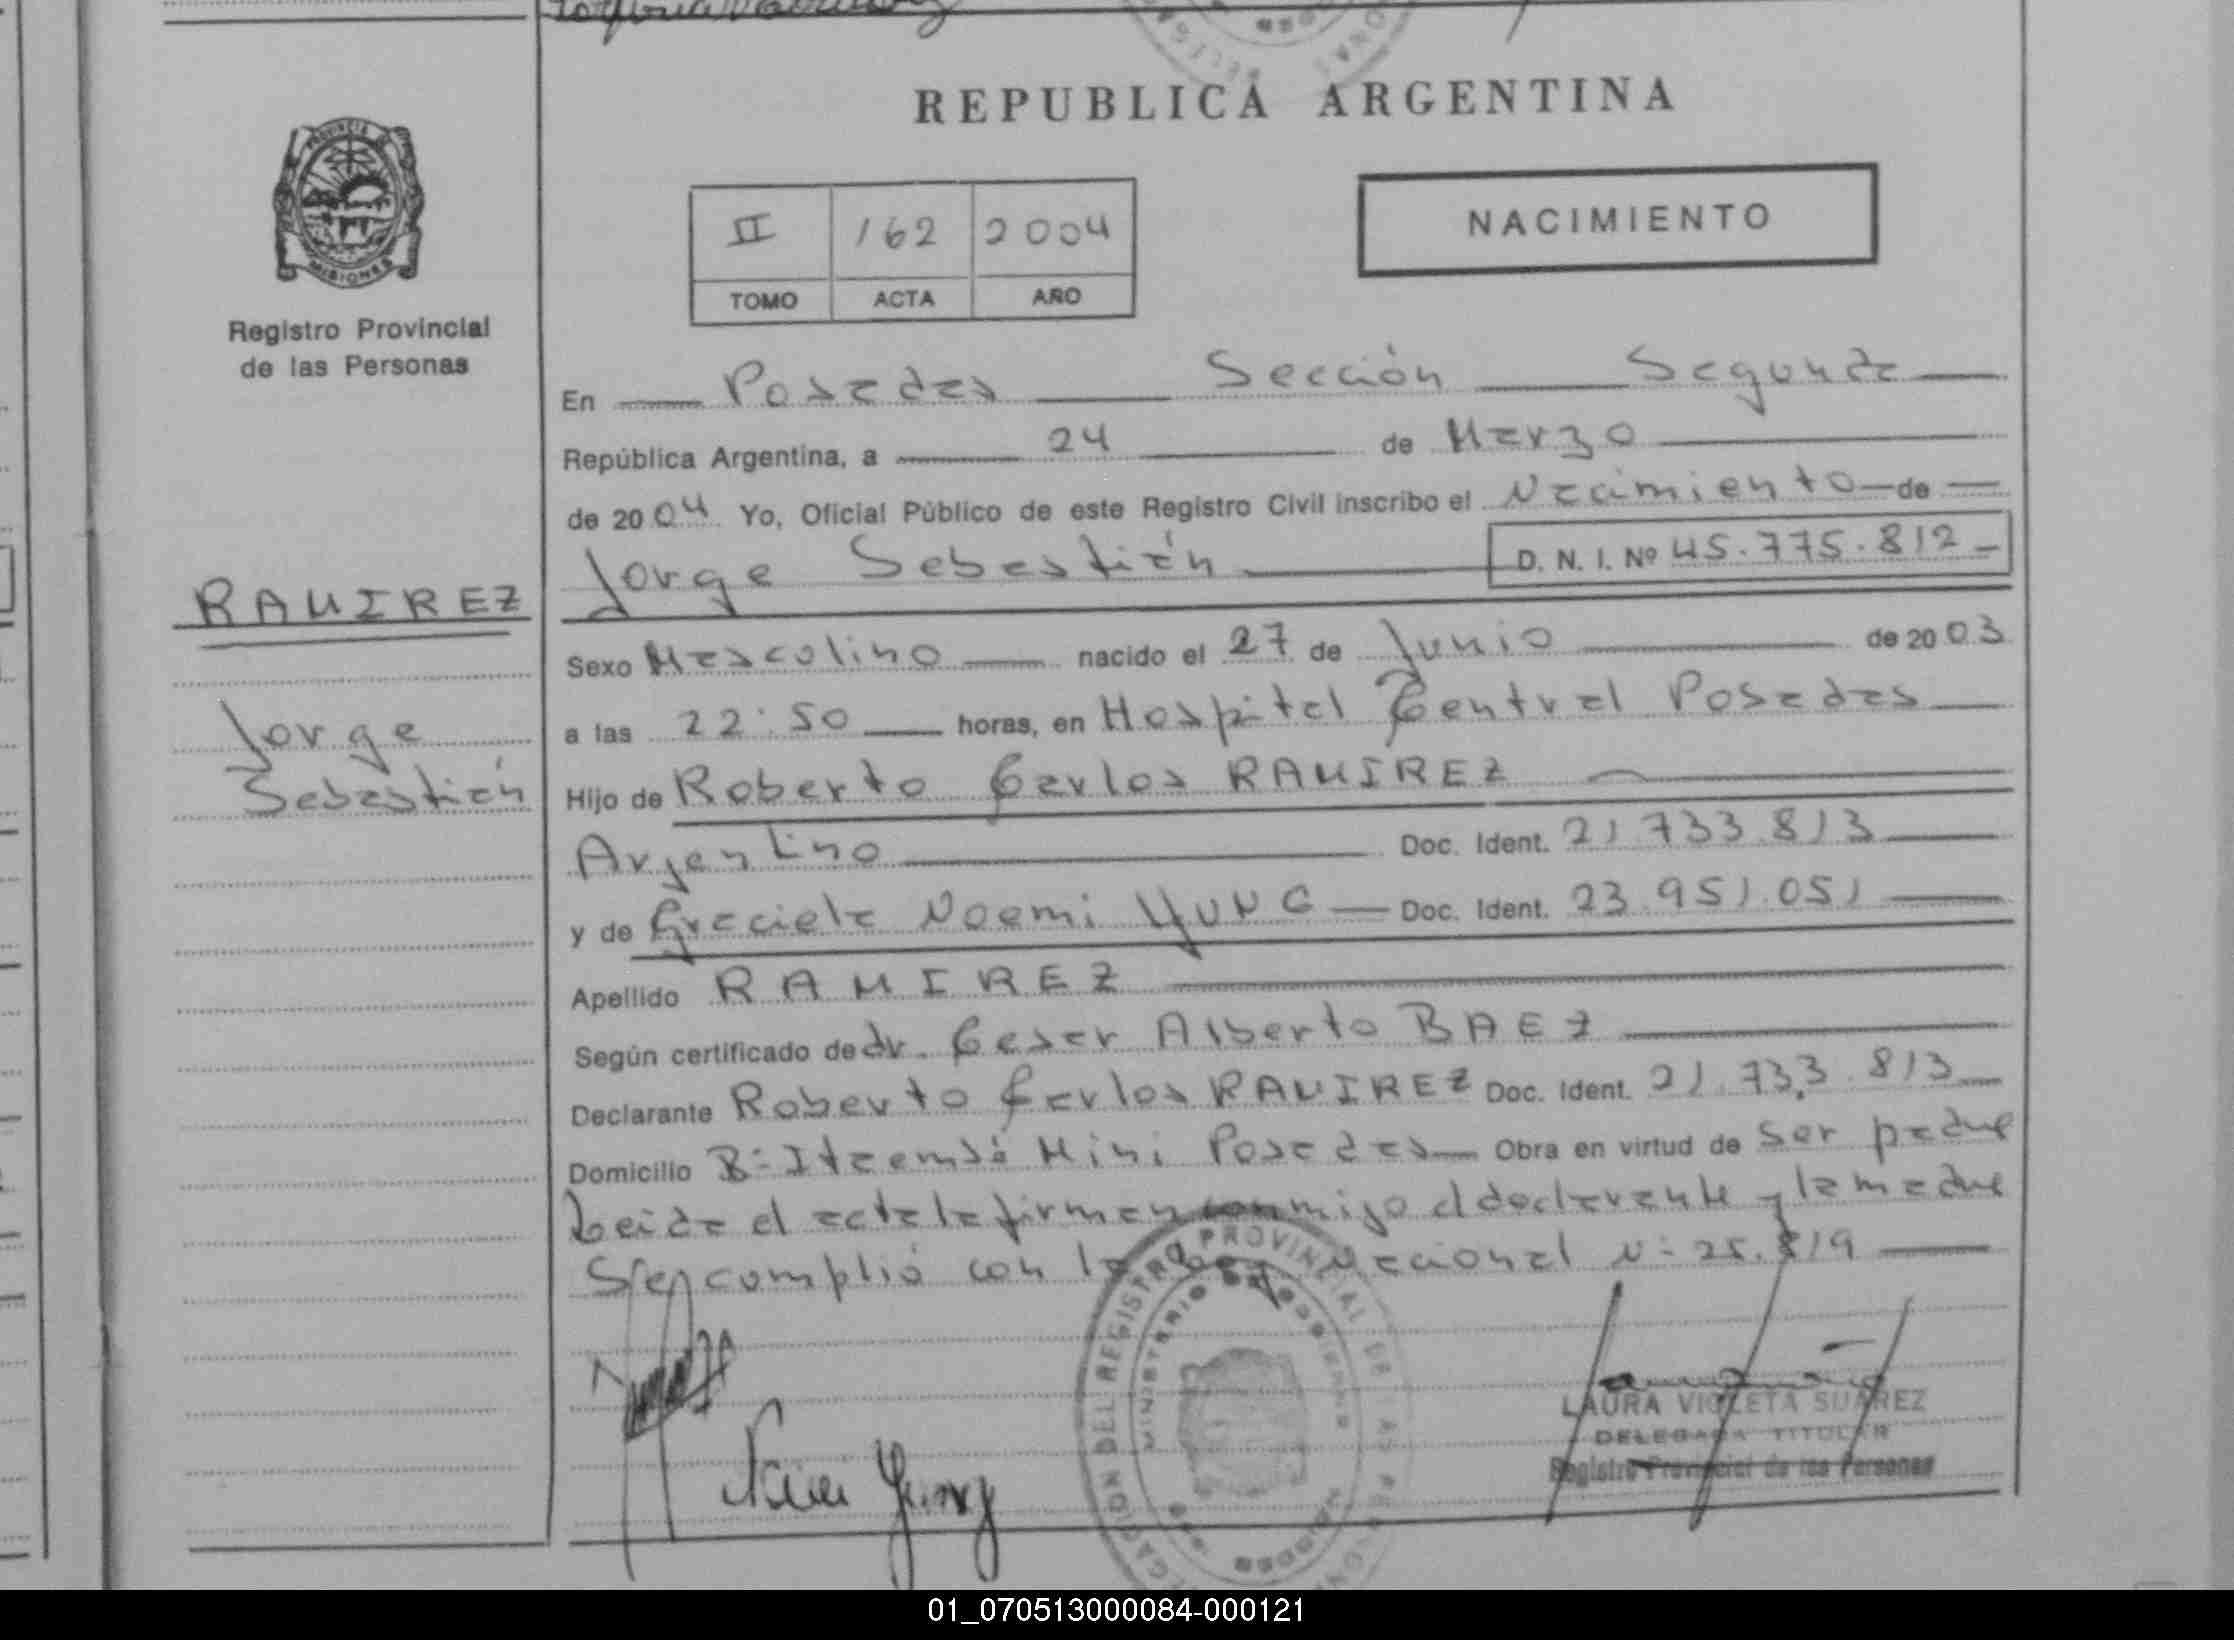 REPUBLICA ARGENTINA
PROVINCIA DE
MISIONES
Registro Provincial
de las Personas
II 162 2004
TOMO ACTA AÑO
NACIMIENTO
En Posadas Sección Segunda
República Argentina, a 24 de Marzo
de 2004 Yo, Oficial Público de este Registro Civil inscribo el Nacimiento de
Jorge Sebastián D. N. I. Nº 45.775.812
RAMIREZ
Jorge
Sebastián
Sexo Masculino nacido el 27 de Junio de 2003
a las 22:50 horas, en Hospital Central Posadas
Hijo de Roberto Carlos RAMIREZ
Argentino Doc. Ident. 21.733.813
y de Graciela Noemi YUNG Doc. Ident. 23.951.051
Apellido RAMIREZ
Según certificado de dr. Cesar Alberto BAEZ
Declarante Roberto Carlos RAMIREZ Doc. Ident. 21.733.813
Domicilio Bº Itaembé Mini Posadas Obra en virtud de ser padre
Leida el acta la firman conmigo el declarante y la madre
Se cumplió con la Ley Nacional Nº 25.819
REGISTRO PROVINCIAL DE LAS PERSONAS
MINISTERIO DE GOBIERNO
MISIONES
LAURA VIOLETA SUAREZ
DELEGADA TITULAR
Registro Provincial de las Personas
01_070513000084-000121